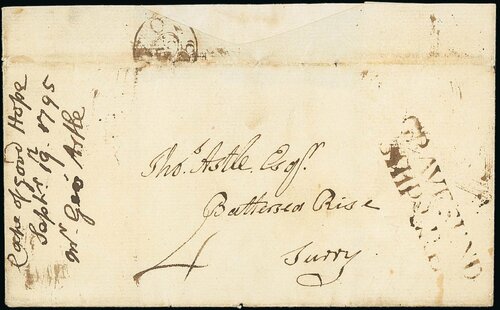 Cape of Good Hope
Septr. 19th. 1795
Mr. Geo Astle
Thos. Astle Esqr.
Battersea Rise
Surry
4
GRAVESEND
SHIP LRE